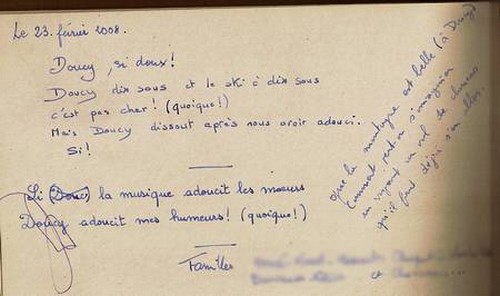 Le 23. février 2008.
Doucy, si doux!
Doucy dix sous et le ski à dix sous
c'est pas cher! (quoique!)
Mais Doucy dissout après nous avoir adouci.
Si!
Si (Douc) la musique adoucit les mœurs
Doucy adoucit mes humeurs! (quoique!)
Familles
et
que la montagne est belle (à Doucy)
Comment peut-on s'imaginer
en voyant un vol de
qu'il faut déjà s'en aller.